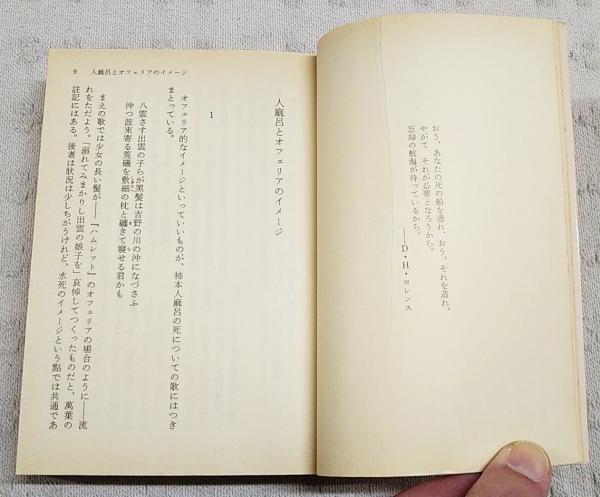 おう、あなたの死の船を造れ、おう、それを造れ、
やがて　それが必要となろうから。
忘却の航海が待っているから。
――D・H・ロレンス
9　人麻呂とオフェリアのイメージ
人麻呂とオフェリアのイメージ
1
オフェリア的なイメージといっていいものが、柿本人麻呂の死についての歌にはつき
まとっている。
八雲さす出雲の子らが黒髪は吉野の川の沖になづさふ
沖つ波來寄る荒磯を敷細の枕と纏きて寝せる君かも
まえの歌では少女の長い髪が――『ハムレット』のオフェリアの場合のように――流
れをただよう。「溺れてみまかりし出雲の娘子を」哀悼してつくったものだと、萬葉の
註記にはある。後者は状況は少しちがうけれど、水死のイメージという點では共通であ